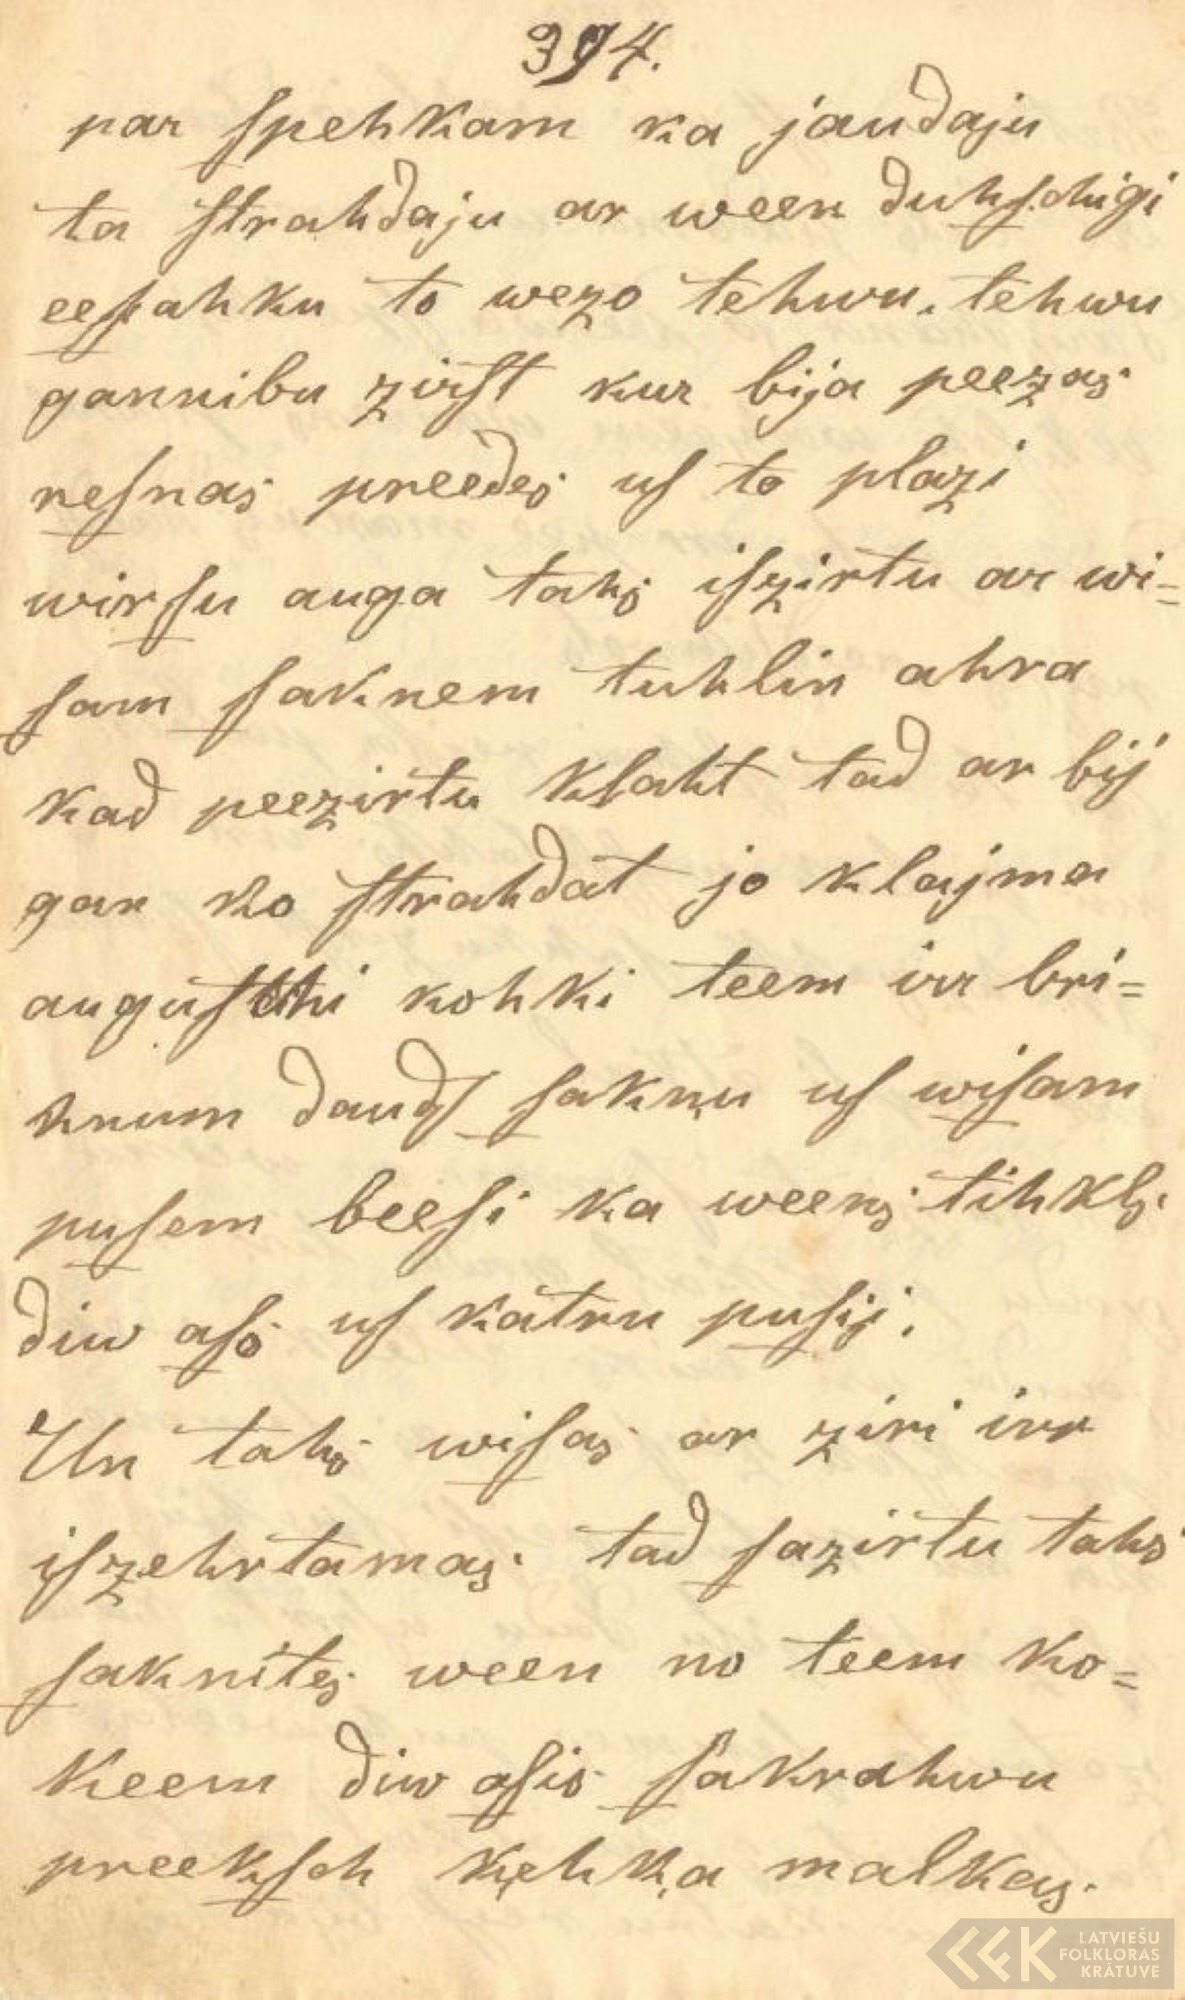 394.
par spehkam ka jaudaju
ta strahdaju ar ween duhschigi
eesahku to wezo tehwu, tehwu
gannibu zirst kur bija peezas
resnas preedes us to plazi
wirsu auga tahs iszirtu ar wi=
sam saknem tuhlin ahra
kad peezirtu klaht tad ar bij
gan ko strahdat jo klajma
auguschi kohki teem irr bri=
hnum daudz sakņu us wisam
pusem beesi ka weens tihkls.
diw ass us katru pusij.
Un tahs wisas ar ziri irr
iszehrtamas. tad sazirtu tahs
saknites ween no teem ko=
keem diw asis sakrahwu
preeksch ķehķa malkas.
LATVIEŠU
FOLKLORAS
KRĀTUVE